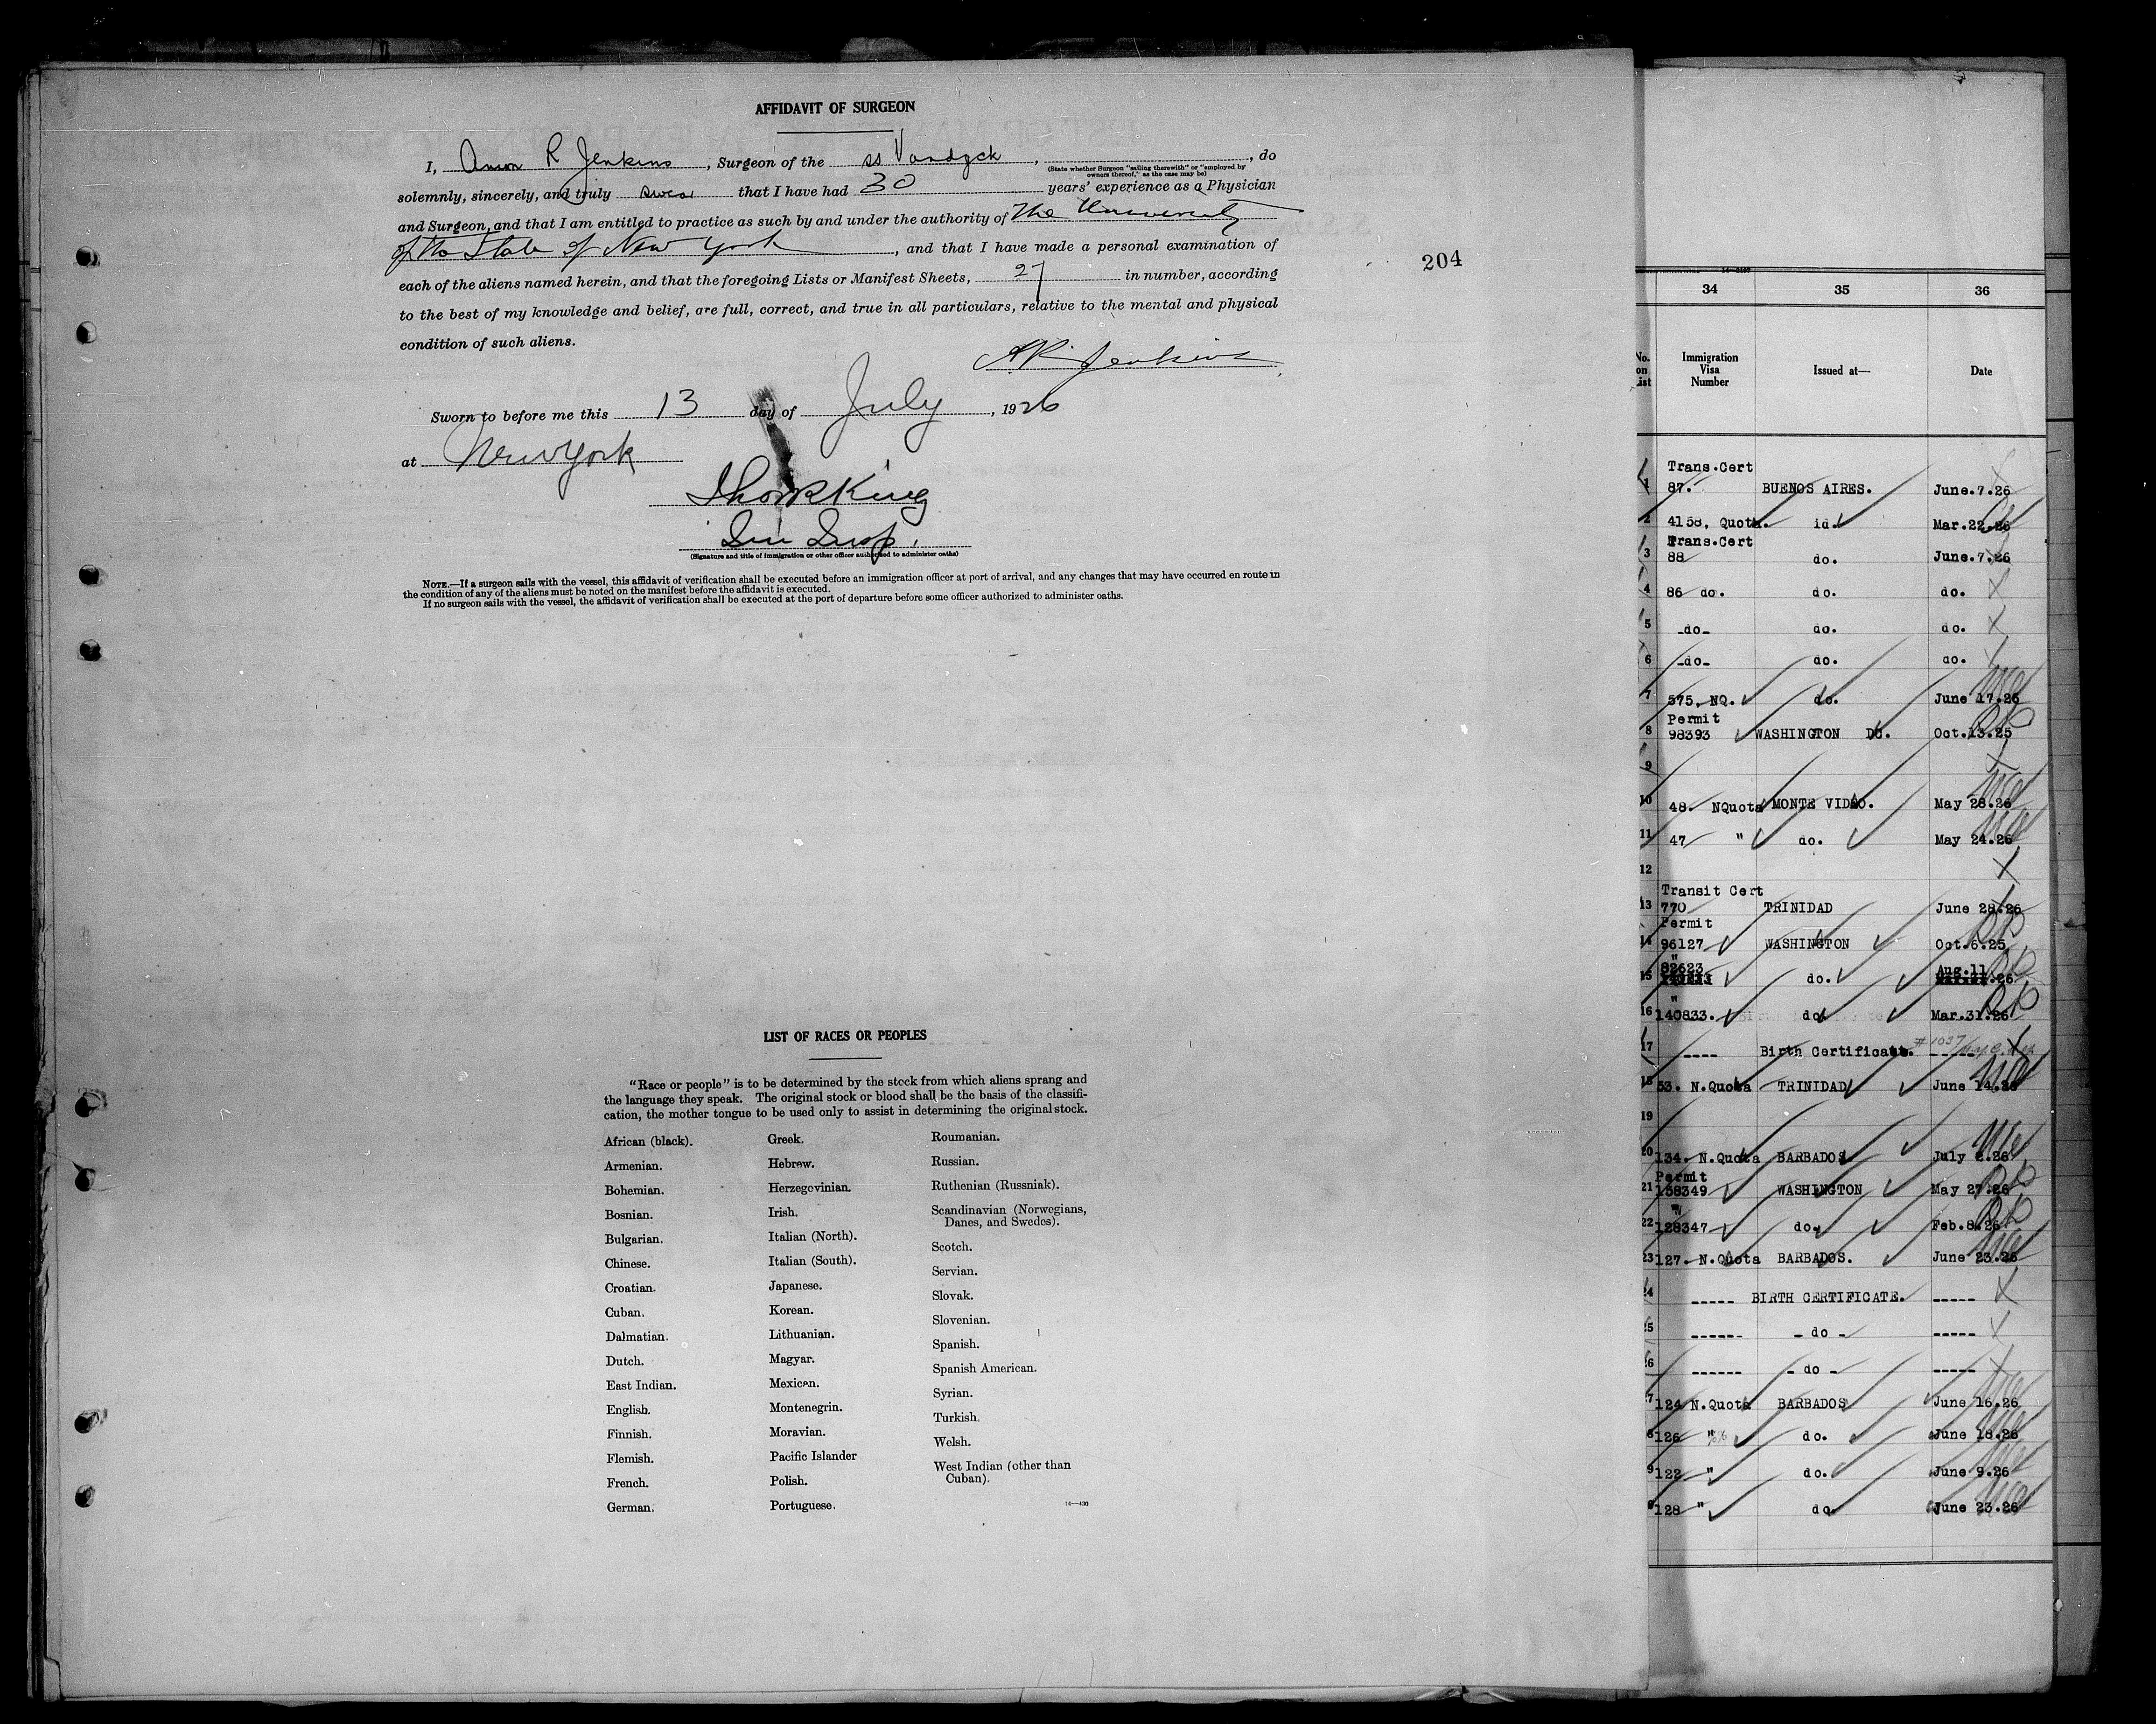 AFFIDAVIT OF SURGEON
I, R Jenkins, Surgeon of the ss Vandyck, , do
(State whether Surgeon "sailing therewith" or "employed by owners thereof," as the case may be)
solemnly, sincerely, and truly swear that I have had 30 years' experience as a Physician
and Surgeon, and that I am entitled to practice as such by and under the authority of The University
of the State of New York, and that I have made a personal examination of
each of the aliens named herein, and that the foregoing Lists or Manifest Sheets, 27 in number, according
to the best of my knowledge and belief, are full, correct, and true in all particulars, relative to the mental and physical
condition of such aliens.
A R Jenkins
Sworn to before me this 13 day of July, 1926
at New York
King
Insp.
(Signature and title of immigration or other officer authorized to administer oaths)
NOTE.—If a surgeon sails with the vessel, this affidavit of verification shall be executed before an immigration officer at port of arrival, and any changes that may have occurred en route in
the condition of any of the aliens must be noted on the manifest before the affidavit is executed.
If no surgeon sails with the vessel, the affidavit of verification shall be executed at the port of departure before some officer authorized to administer oaths.
204
LIST OF RACES OR PEOPLES
"Race or people" is to be determined by the stock from which aliens sprang and
the language they speak. The original stock or blood shall be the basis of the classifi-
cation, the mother tongue to be used only to assist in determining the original stock.
African (black).
Armenian.
Bohemian.
Bosnian.
Bulgarian.
Chinese.
Croatian.
Cuban.
Dalmatian.
Dutch.
East Indian.
English.
Finnish.
Flemish.
French.
German.
Greek.
Hebrew.
Herzegovinian.
Irish.
Italian (North).
Italian (South).
Japanese.
Korean.
Lithuanian.
Magyar.
Mexican.
Montenegrin.
Moravian.
Pacific Islander
Polish.
Portuguese.
Roumanian.
Russian.
Ruthenian (Russniak).
Scandinavian (Norwegians,
Danes, and Swedes).
Scotch.
Servian.
Slovak.
Slovenian.
Spanish.
Spanish American.
Syrian.
Turkish.
Welsh.
West Indian (other than
Cuban).
14—430
34 35 36
No. on List
Immigration Visa Number
Issued at—
Date
Trans.Cert
1 87. BUENOS AIRES. June.7.26
2 4158, Quota. id. Mar.22.26
Trans.Cert
3 88 do. June.7.26
4 86 do. do. do.
5 -do- do. do.
6 -do- do. do.
7 575, NQ. do. June 17.26
Permit
8 98393 WASHINGTON DC. Oct.13.25
9
10 48. NQuota MONTE VIDAO. May 28.26
11 47 " do. May 24.26
12
Transit Cert
13 770 TRINIDAD June 28.26
Permit
14 96127 WASHINGTON Oct.6.25
"
15 82623 do. Aug.11 .26
"
16 140833. do. Mar.31.26
17 ---- Birth Certificate. #1037
18 53. N.Quota TRINIDAD June 14.26
19
20 134. N.Quota BARBADOS. July 2.26
Permit
21 158349 WASHINGTON May 27.26
"
22 128347 do. Feb.8.26
23 127. N.Quota BARBADOS. June 23.26
24 ----- BIRTH CERTIFICATE. -----
5 ------ - do - -----
6 ------ - do - -----
7 124 N.Quota BARBADOS June 16.26
8 126 " do. June 18.26
9 122 " do. June 9.26
128 " do. June 23.26